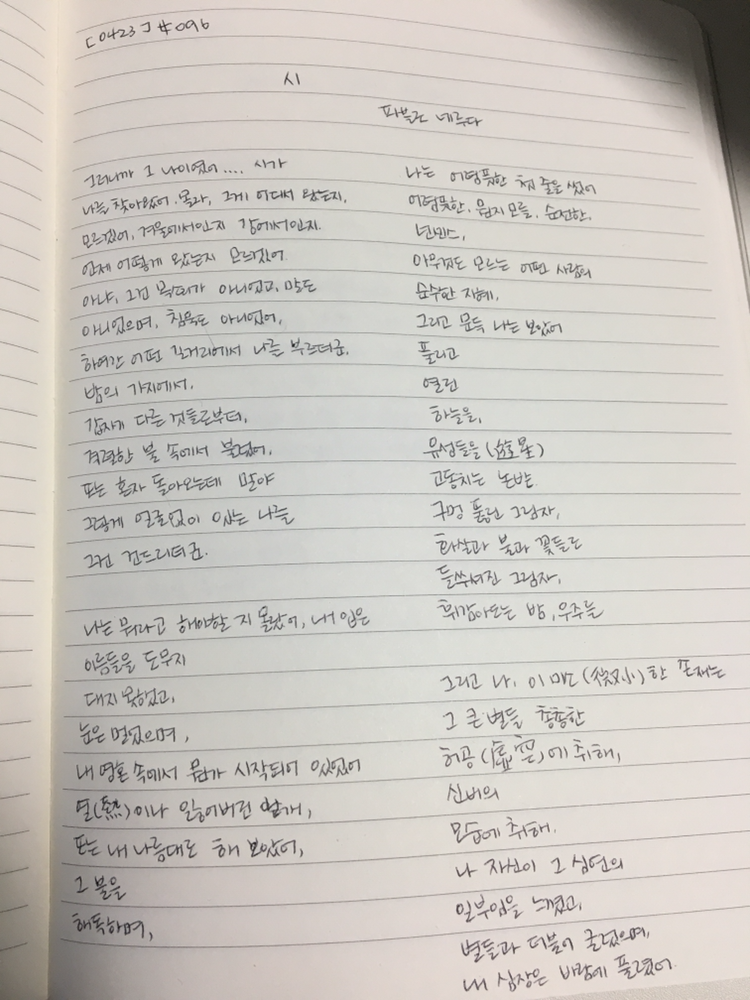 [0423] #096
시
파블로 네루다
그러니까 그 나이였어.... 시가
나를 찾아왔어. 몰라, 그게 어디서 왔는지,
모르겠어, 겨울에서인지 강에서인지.
언제 어떻게 왔는지 모르겠어.
아냐, 그건 목소리가 아니었고, 말도
아니었으며, 침묵도 아니었어,
하여간 어떤 길거리에서 나를 부르더군.
밤의 가지에서,
갑자기 다른 것들로부터,
격렬한 불 속에서 불렀어,
또는 혼자 돌아오는데 말야
그렇게 얼굴없이 있는 나를
그건 건드리더군.
나는 뭐라고 해야할 지 몰랐어, 내 입은
이름들을 도무지
대지 못했고,
눈은 멀었으며,
내 영혼 속에서 뭔가 시작되어 있었어
열(熱)이나 잃어버린 날개,
또는 내 나름대로 해 보았어,
그 불을
해독하며,
나는 어렴풋한 첫 줄을 썼어
어렴풋한, 뭔지 모를, 순전한,
넌센스,
아무것도 모르는 어떤 사람의
순수한 지혜,
그리고 문득 나는 보았어
풀리고
열린
하늘을,
유성들을
고동치는 논밭,
구멍 뚫린 그림자,
화살과 불과 꽃들로
들쑤셔진 그림자,
휘감아도는 밤, 우주를
그리고 나, 이 미소(微小)한 존재는
그 큰 별들 총총한
허공(虛空)에 취해,
신비의
모습에 취해.
나 자신이 그 심연의
일부임을 느꼈고,
별들과 더불어 굴렀으며,
내 심장은 바람에 풀렸어.